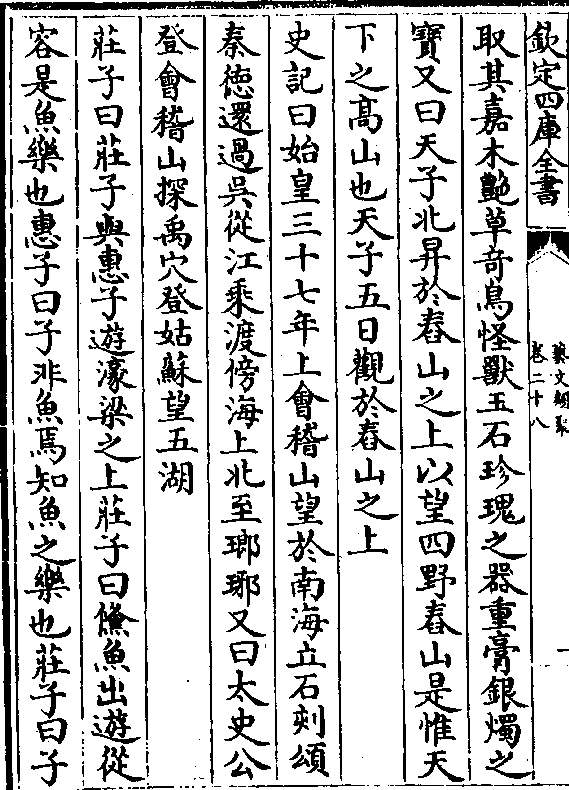 欽定四庫全書
藝文類聚
卷二十八
取其嘉木艶草竒鳥怪獸玉石珍瑰之器重膏銀燭之
寶又曰天子北昇於舂山之上以望四野舂山是惟天
下之髙山也天子五日觀於舂山之上
史記曰始皇三十七年上會稽山望於南海立石刻頌
秦徳還過吳從江乘渡傍海上北至瑯琊又曰太史公
登會稽山探禹穴登姑蘇望五湖
莊子曰莊子與惠子遊濠梁之上莊子曰鯈魚出遊從
容是魚樂也惠子曰子非魚焉知魚之樂也莊子曰子